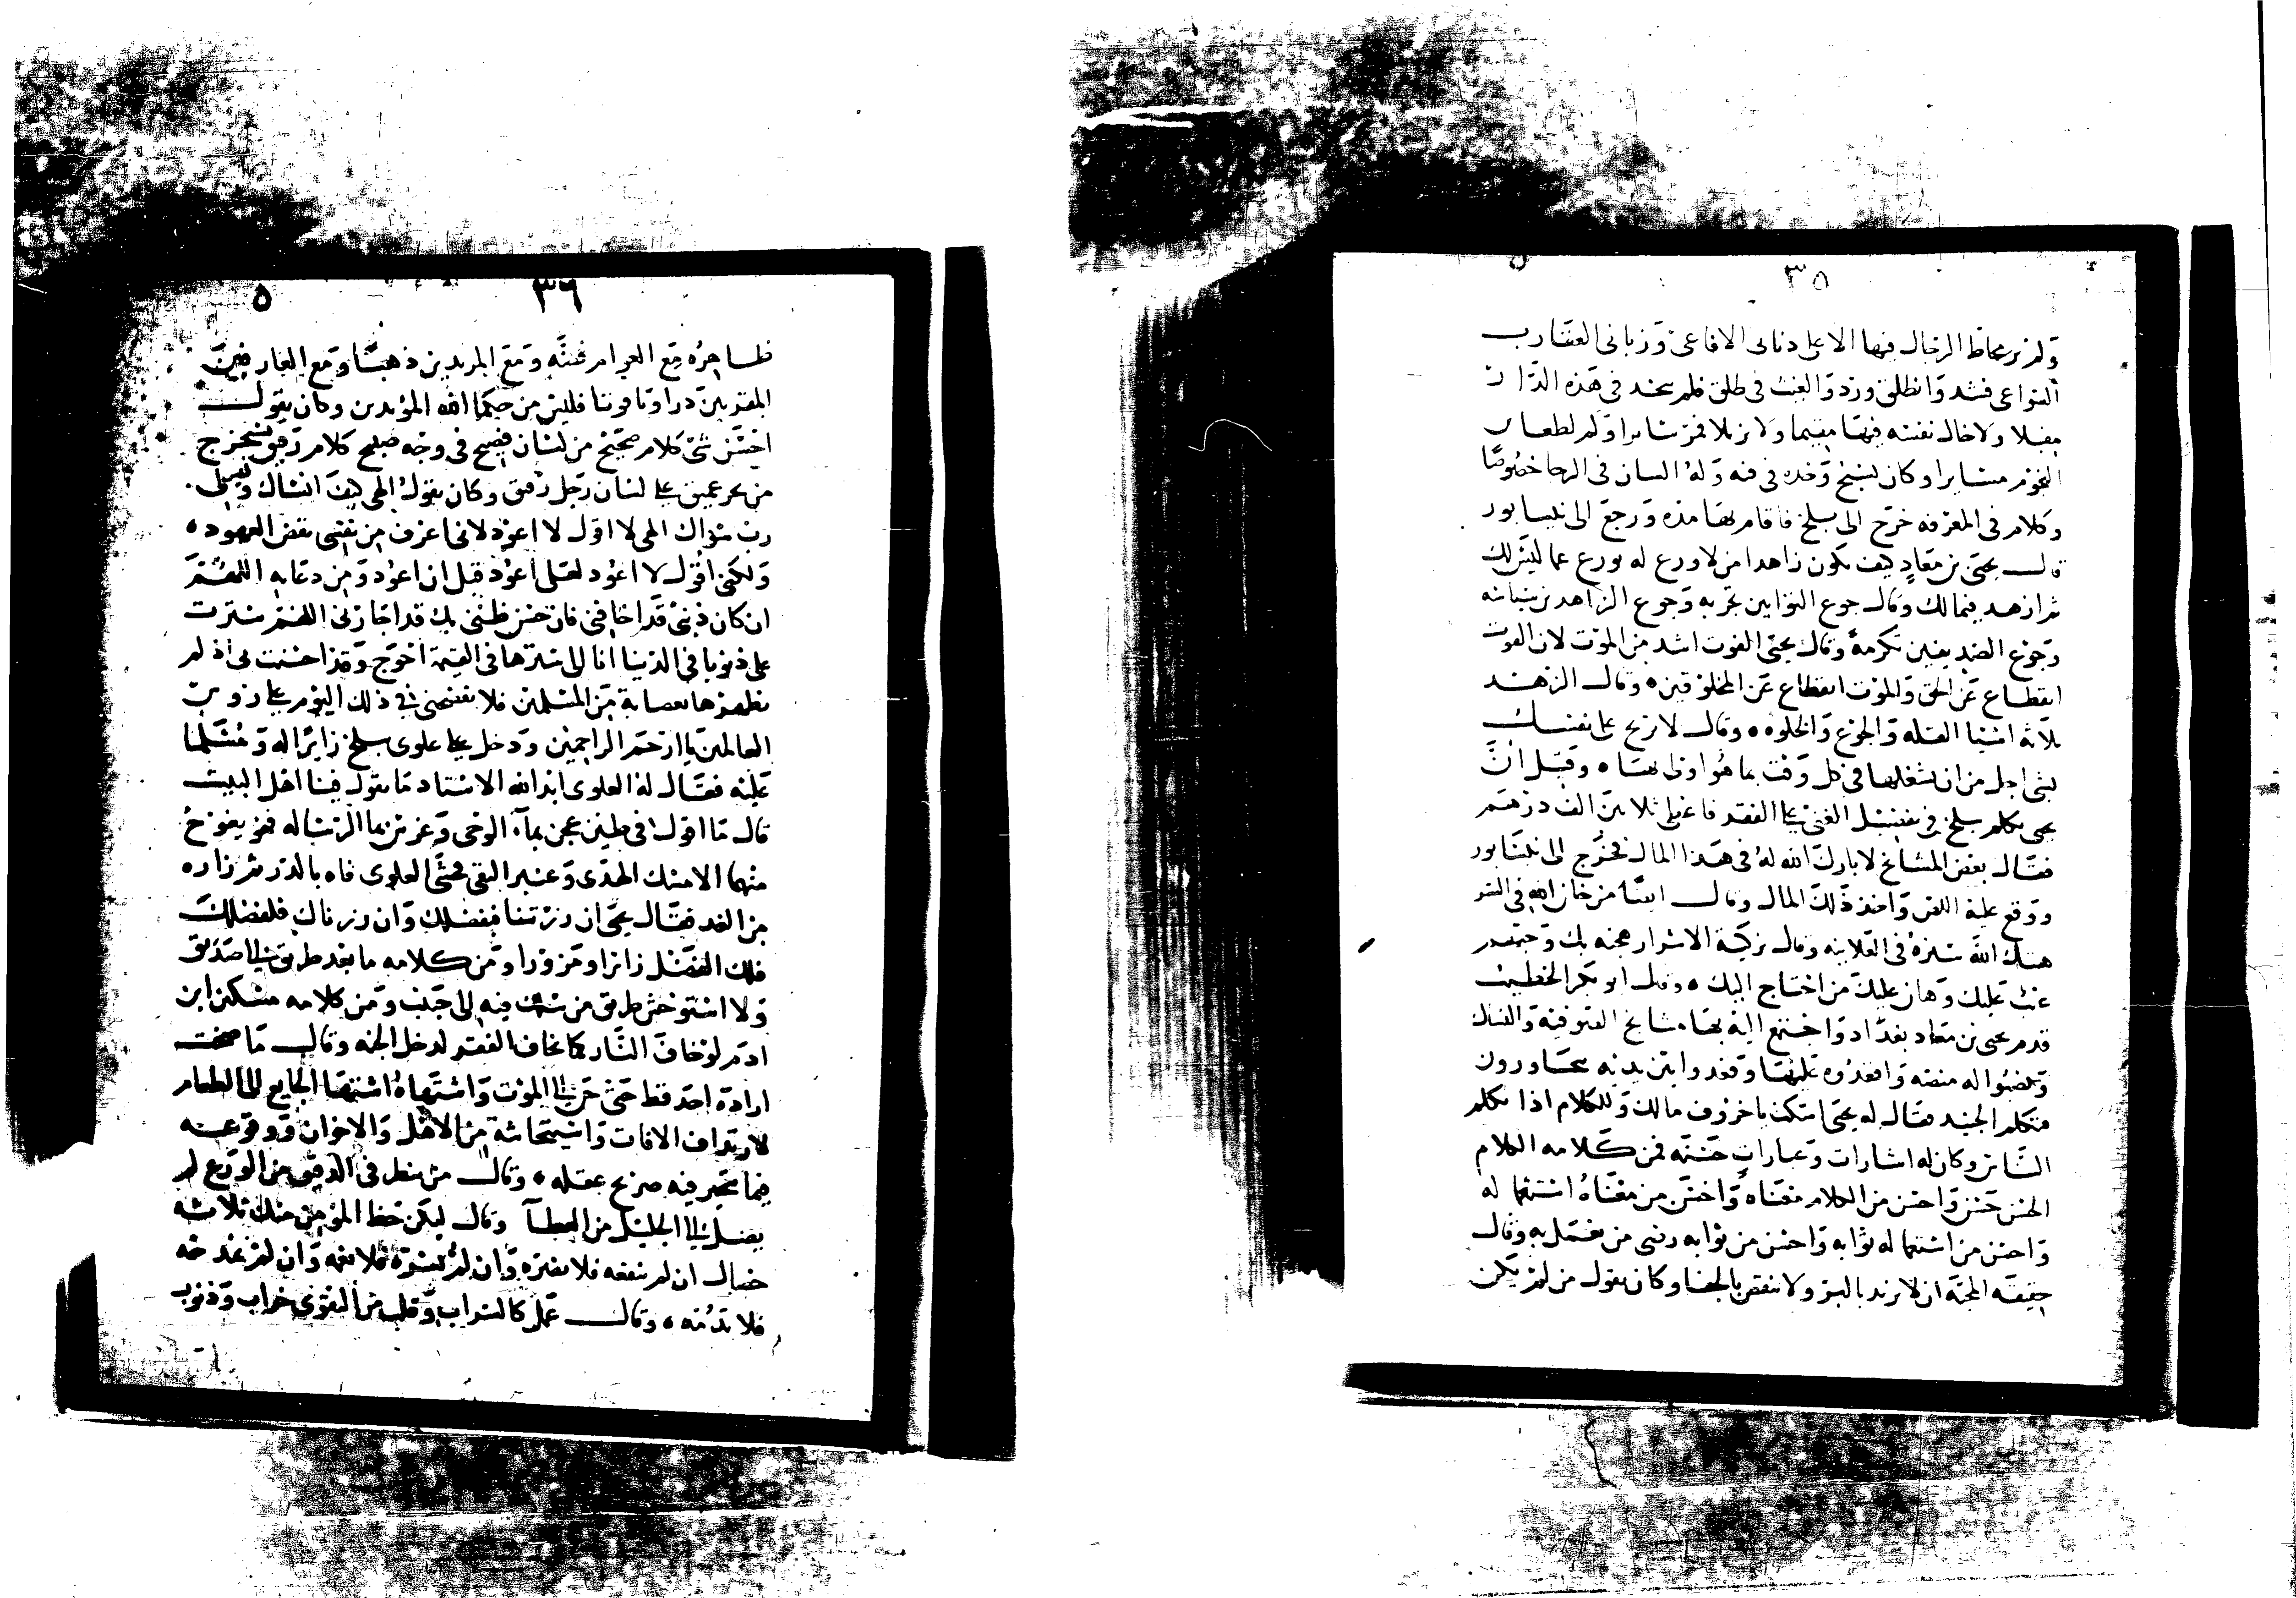 ٣٥
ولم ير محاط الرحال فيها الا على ذنابى الافاعى وزبانى العقارب
مقيلا ولا خال نفسه فيها مقيما ولا نزيلا فمر سايرا ولم لطعام
النوم مسايرا وكان لشيخ وحده فى فنه وله لسان فى الرجا خصوصا
وكلام فى المعرفه خرج الى بلخ فاقام بها مده ورجع الى نيسابور
قال يحيى بن معاذ كيف يكون زاهدا من لا ورع له تورع عما ليس لك
ثم ازهد فيما لك وقال جوع التوابين تجربه وجوع الزاهدين سياسه
وجوع الصديقين تكرمة وقال يحيى الفوت اشد من الموت لان الفوت
انقطاع عن الحق والموت انقطاع عن المخلوقين ه وقال الزهد
ثلاثه اشيا القله والجوع والخلوه ه وقال لا تربح على نفسك
بشى اجل من ان تشغلها فى كل وقت بما هو اولى بها ه وقيل ان
يحيى تكلم ببلخ فى تفضيل الغنى على الفقر فاعطى ثلاثين الف درهم
فقال بعض المشايخ لا بارك الله له فى هذا المال فخرج الى نيسابور
ووقع عليه اللص واخذ ذلك المال وقال ايضا من خان الله فى السر
هتك الله ستره فى العلانيه وقال تزكية الاشرار هجنه بك وحبهم
عيب عليك وهان عليك من احتاج اليك ه وقال ابو بكر الخطيب
قدم يحيى بن معاذ بغداد واجتمع اليه بها مشايخ الصوفيه والنساك
ونصبوا له منصه واقعدوه عليها وقعدوا بين يديه يتحاورون
فتكلم الجنيد فقال له يحيى اسكت يا خروف مالك وللكلام اذا تكلم
الناس وكان له اشارات وعبارات حسنه فمن كلامه الكلام
الحسن حسن واحسن من الكلام معناه واحسن من معناه استعماله
واحسن من استعماله ثوابه واحسن من ثوابه رضى من يعمل به وقال
حقيقه المحبة ان لا تزيد بالبر ولا تنقص بالجفا وكان يقول من لم يكن
٣٦
ظاهره مع العوام فضه ومع المريدين ذهبا ومع العارفين
المقربين درا وياقوتا فليس من حكما الله المؤيدين وكان يقول
احسن شى كلام صحيح من لسان فصيح فى وجه صبيح كلام رقيق يستخرج
من بحر عميق على لسان رجل رفيق وكان يقول الهى كيف انساك وليس لى
رب سواك الهى لا اقول لا اعود لانى اعرف من نفسى نقض العهود ه
ولكنى اقول لا اعود لعلى اموت قبل ان اعود ومن دعايه اللهم
ان كان ذنبى قد اخافنى فان حسن ظنى بك قد اجارنى اللهم سترت
على ذنوبا فى الدنيا انا الى سترها فى القيمة احوج وقد احسنت بى اذ لم
تظهرها لعصابة من المسلمين فلا تفضحنى فى ذلك اليوم على روس
العالمين يا ارحم الراحمين ودخل على علوى ببلخ زايرا له ومسلما
عليه فقال له العلوى ايد الله الاستاد ما تقول فينا اهل البيت
قال ما اقول فى طين عجن بماء الوحى وغرس بما الرساله فهل يفوح
منهما الا مسك الهدى وعنبر التقى فحشى العلوى فاه بالدر ثم زاره
من الغد فقال يحيى ان زرتنا فبفضلك وان زرناك فلفضلك
فلك الفضل زائرا ومزورا ومن كلامه ما بعد طريق الى صديق
ولا استوحش طريق من سلك فيه الى حبيب ومن كلامه مسكين ابن
ادم لو خاف النار كما يخاف الفقر لدخل الجنه وقال ما صحت
ارادة احد قط حتى حن الى الموت واشتهاه اشتها الجايع الى الطعام
لارتداف الافات واستيحاشه من الاهل والاخوان ووقوعه
فيما تحير فيه صريح عقله ه وقال من لم ينظر فى الدقيق من الورع لم
يصل الى الجليل من العطا وقال ليكن حظ المؤمن منك ثلاث
خصال ان لم تنفعه فلا تضره وان لم تسره فلا تغمه وان لم تمدحه
فلا تذمه ه وقال عمل كالسراب وقلب من التقوى خراب وذنوب